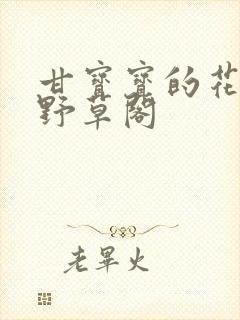 甘寶寶的花
野草閣
老畢火